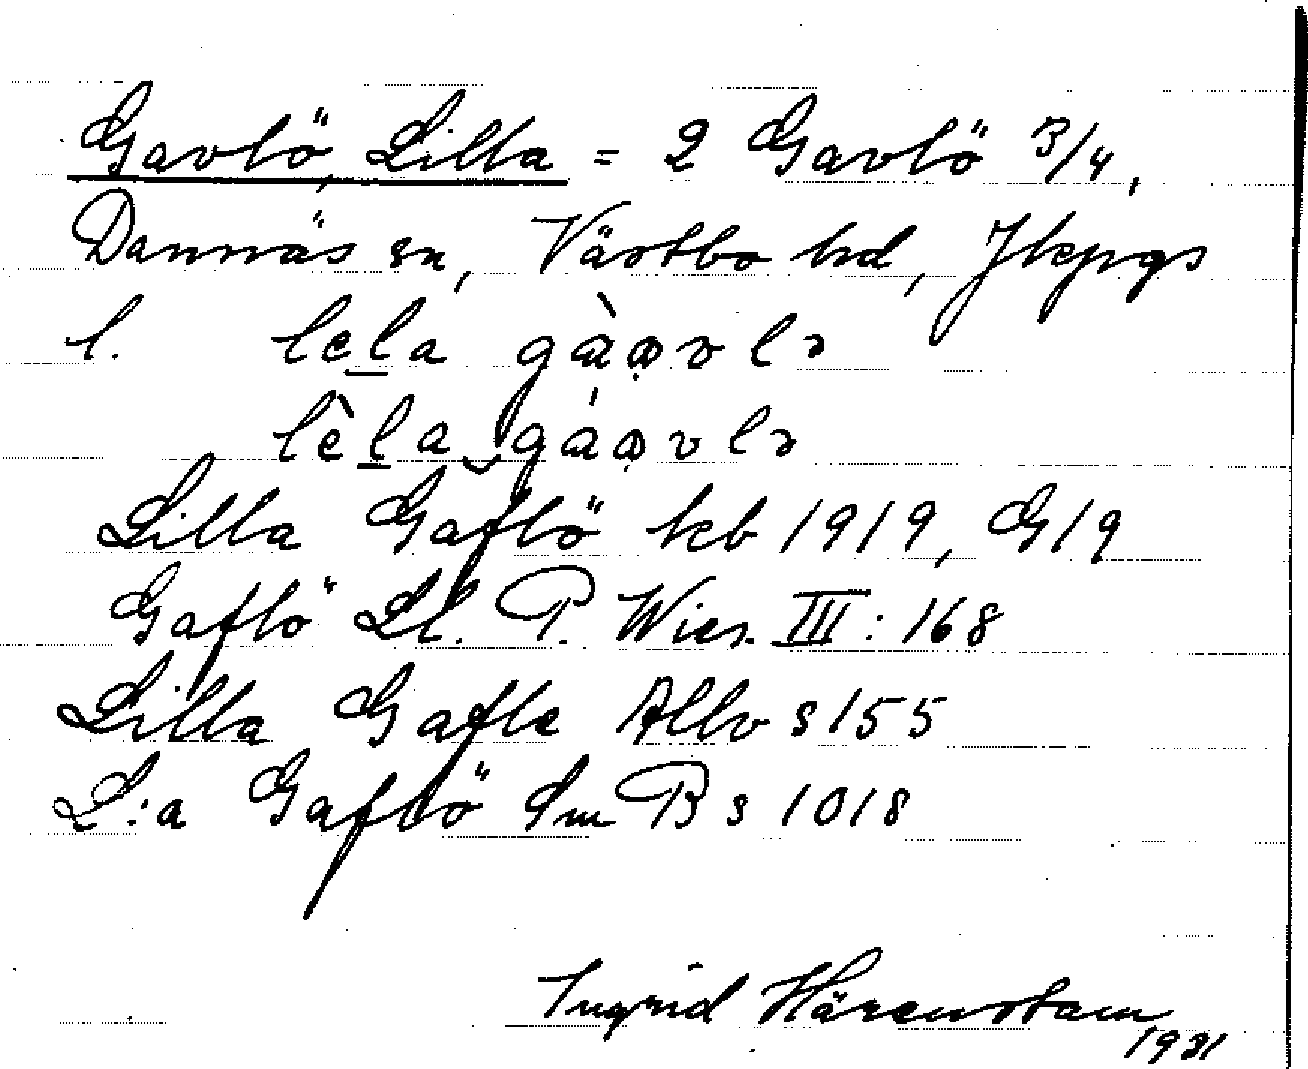 Gavlö, Lilla = 2 Gavlö 3/4,
Dannäs sn, Västbo hd, Jkpgs
l. lela gàavlə
lèla gáavlə
Lilla Gaflö kb 1919, G19
Gaflö Ll. P. Wies. III: 168
Lilla Gafle Allv s 155
L:a Gaflö Sm B s 1018
Ingrid Härenstam
1931